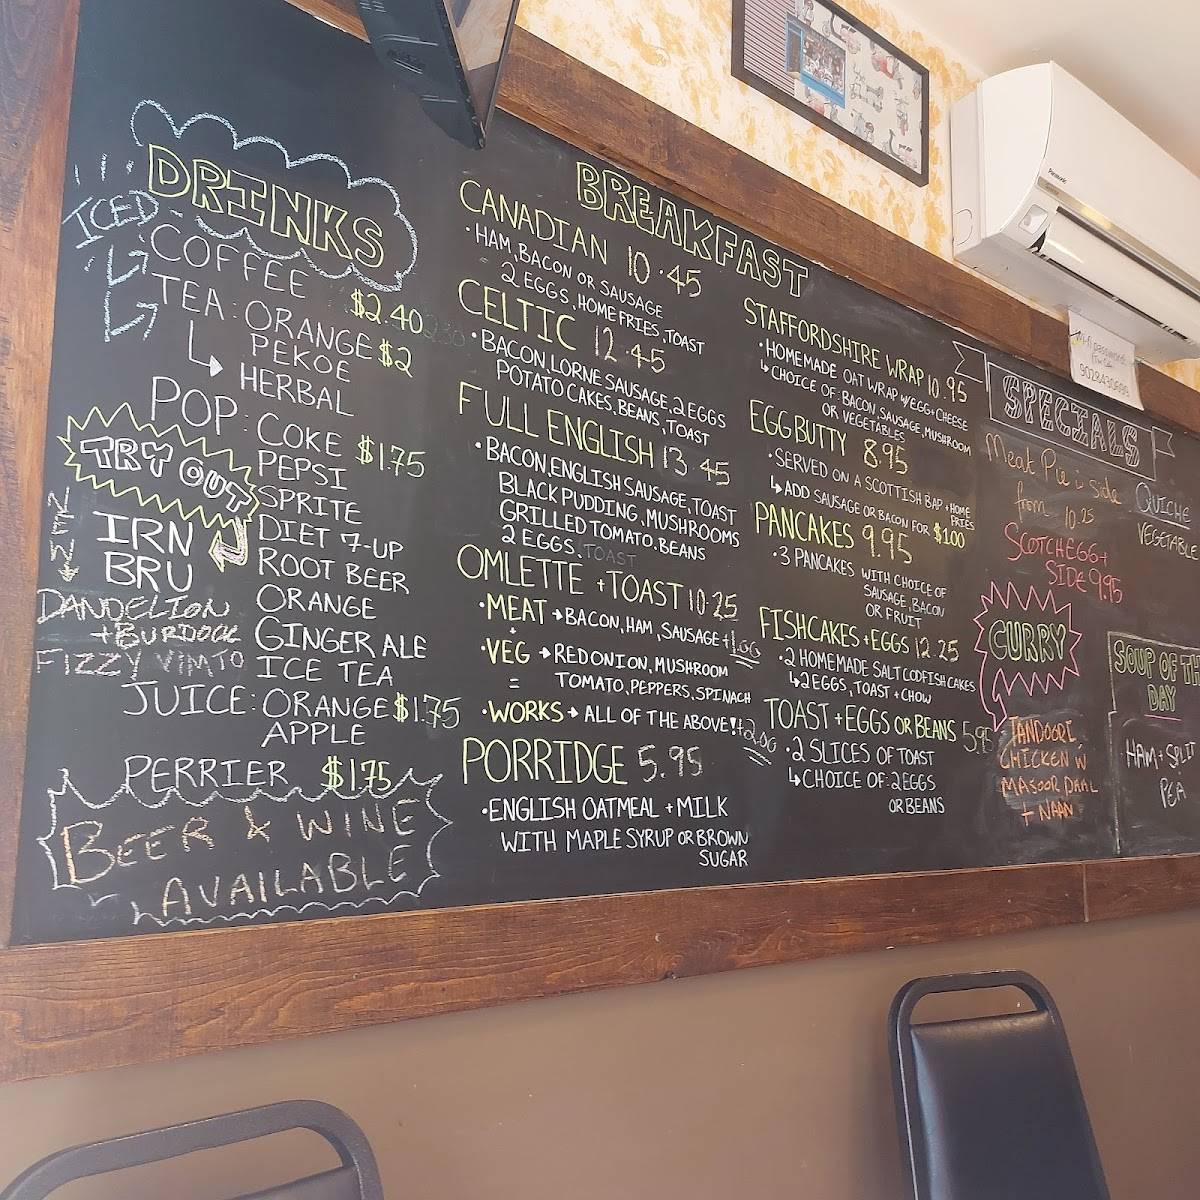 DRINKS
ICED
COFFEE $2.40
TEA: ORANGE
PEKOE $2
HERBAL
POP: COKE $1.75
PEPSI
SPRITE
DIET 7-UP
ROOT BEER
ORANGE
GINGER ALE
ICE TEA
TRY OUT
IRN
BRU
DANDELION
+BURDOCK
FIZZY VIMTO
JUICE: ORANGE $1.75
APPLE
PERRIER $1.75
BEER & WINE
AVAILABLE
BREAKFAST
CANADIAN 10.45
·HAM, BACON OR SAUSAGE
2 EGGS, HOME FRIES, TOAST
CELTIC 12.45
·BACON, LORNE SAUSAGE, 2 EGGS
POTATO CAKES, BEANS, TOAST
FULL ENGLISH 13.45
·BACON, ENGLISH SAUSAGE, TOAST
BLACK PUDDING, MUSHROOMS
GRILLED TOMATO. BEANS
2 EGGS. TOAST
OMLETTE +TOAST 10.25
·MEAT → BACON, HAM, SAUSAGE +1.00
·VEG → RED ONION, MUSHROOM
= TOMATO, PEPPERS, SPINACH
·WORKS → ALL OF THE ABOVE! +2.00
PORRIDGE 5.95
·ENGLISH OATMEAL + MILK
WITH MAPLE SYRUP OR BROWN
SUGAR
STAFFORDSHIRE WRAP 10.95
·HOMEMADE OAT WRAP W/EGG+CHEESE
↳CHOICE OF: BACON, SAUSAGE, MUSHROOM
OR VEGETABLES
EGG BUTTY 8.95
·SERVED ON A SCOTTISH BAP +HOME
FRIES
↳ADD SAUSAGE OR BACON FOR $1.00
PANCAKES 9.95
·3 PANCAKES WITH CHOICE OF
SAUSAGE, BACON
OR FRUIT
FISHCAKES +EGGS 12.25
·2 HOMEMADE SALT CODFISH CAKES
↳2 EGGS, TOAST + CHOW
TOAST +EGGS OR BEANS 5.95
·2 SLICES OF TOAST
↳CHOICE OF: 2 EGGS
OR BEANS
SPECIALS
Meat Pie & side
from 10.25
SCOTCH EGG +
SIDE 9.95
CURRY
TANDOORI
CHICKEN W
MASOOR DAAL
+ NAAN
QUICHE
VEGETABLE
SOUP OF TH
DAY
HAM + SPLIT
PEA
Panasonic
Wi-fi password
9028430699